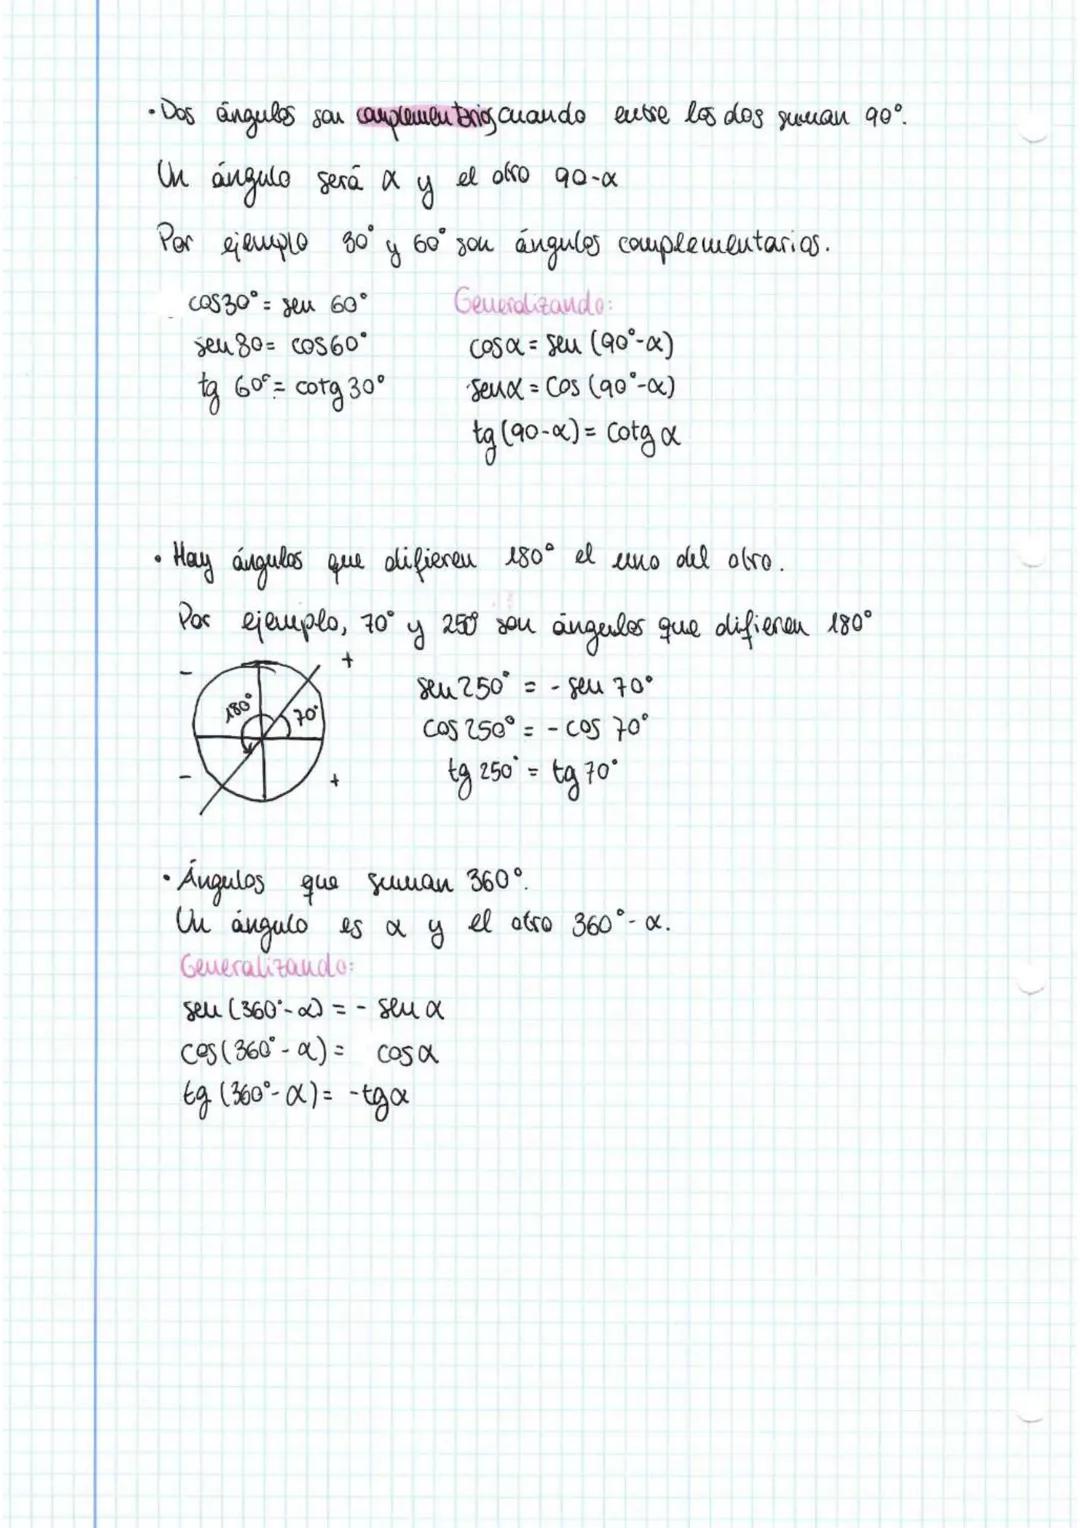 · Dos ángulos son complementrios cuando entre los dos suman 90°.
Un ángulo será α y el otro 90-α
Por ejemplo 30° y 60° son ángulos complementarios.
cos30° = sen 60°
sen 30 = cos60°
tg 60° = cotg 30°
Generalizando:
cosα = sen (90°-α)
senα = cos (90°-α)
tg (90-α) = cotg α
· Hay ángulos que difieren 180° el uno del otro.
Por ejemplo, 70° y 250° son ángulos que difieren 180°
- +
180° 70°
- +
sen 250° = - sen 70°
cos 250° = - cos 70°
tg 250° = tg 70°
· Ángulos que suman 360°.
Un ángulo es α y el otro 360°- α.
Generalizando:
sen (360°-α) = - sen α
cos (360° - α) = cos α
tg (360°- α) = -tg α